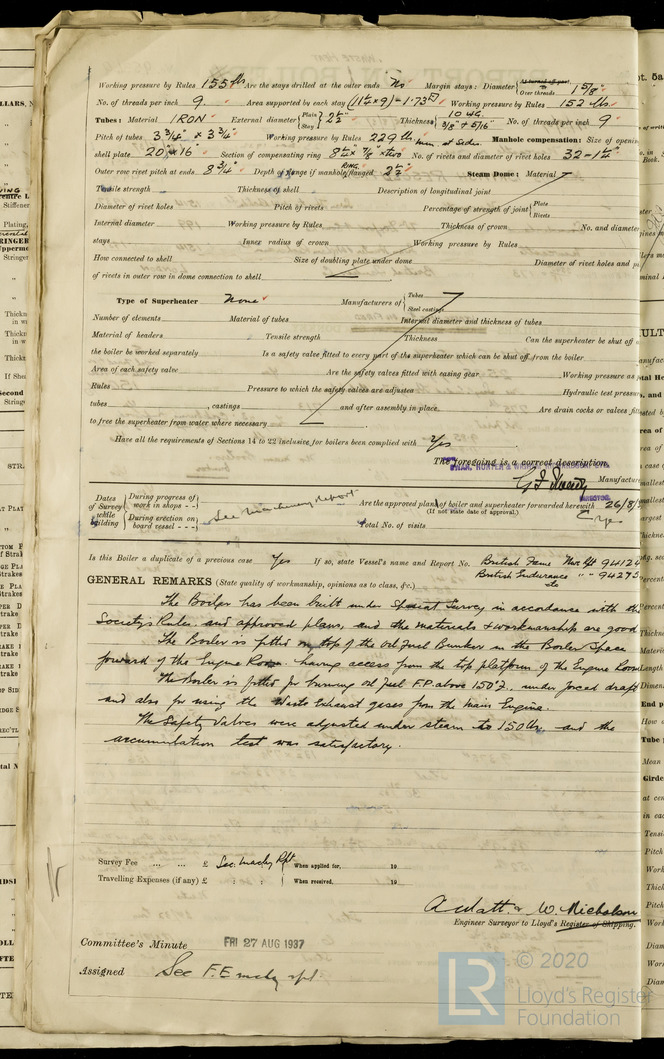 Working pressure by Rules 155 lbs Are the stays drilled at the outer ends No Margin stays: Diameter { At turned off part, Over threads 1 5/8"
No. of threads per inch 9. Area supported by each stay (11 1/2" x 9) - 1.73 □" Working pressure by Rules 152 lbs.
Tubes: Material IRON External diameter { Plain Stay } 2 1/2" Thickness { 10 WG. 3/8" & 5/16" No. of threads per inch 9
Pitch of tubes 3 3/4" x 3 3/4" Working pressure by Rules 229 lbs Manhole compensation: Size of openin
shell plate 20" x 16" Section of compensating ring No. of rivets and diameter of rivet holes 32 - 1 1/4"
Outer row rivet pitch at ends 8 3/4" Depth of flange if manhole flanged RING 2 1/2" Steam Dome: Material
Tensile strength Thickness of shell Description of longitudinal joint
Diameter of rivet holes Pitch of rivets Percentage of strength of joint { Plate Rivets
Internal diameter Working pressure by Rules Thickness of crown No. and diameter
stays Inner radius of crown Working pressure by Rules
How connected to shell Size of doubling plate under dome Diameter of rivet holes and pi
of rivets in outer row in dome connection to shell
Type of Superheater None Manufacturers of { Tubes Steel castings
Number of elements Material of tubes Internal diameter and thickness of tubes
Material of headers Tensile strength Thickness Can the superheater be shut off
the boiler be worked separately Is a safety valve fitted to every part of the superheater which can be shut off from the boiler
Area of each safety valve Are the safety valves fitted with easing gear Working pressure as
Rules Pressure to which the safety valves are adjusted Hydraulic test pressure
tubes , castings and after assembly in place, Are drain cocks or valves fit
to free the superheater from water where necessary
Have all the requirements of Sections 14 to 22 inclusive for boilers been complied with Yes
The foregoing is a correct description,
SWAN, HUNTER & WIGHAM RICHARDSON, LTD.
Manufactur
DIRECTOR.
Dates of Survey while building { During progress of work in shops - - During erection on board vessel - - } See machinery report Are the approved plans of boiler and superheater forwarded herewith 26/8/
(If not state date of approval.) Yes
Total No. of visits
Is this Boiler a duplicate of a previous case Yes If so, state Vessel's name and Report No. British Fame Nwc Rpt 94124
British Endurance " - 94273
etc
GENERAL REMARKS (State quality of workmanship, opinions as to class, &c.)
The Boiler has been built under Special Survey in accordance with the
Society's Rules and approved plans, and the materials & workmanship are good
The Boiler is fitted on top of the oil fuel Bunker in the Boiler Space
forward of the Engine Room having access from the top platform of the Engine Room
The Boiler is fitted for burning oil fuel F.P. above 150°F. under forced draft
and also for using the Waste Exhaust gases from the Main Engine.
The Safety Valves were adjusted under steam to 150 lbs. and the
accumulation test was satisfactory.
Survey Fee ... ... £ See machy Rpt When applied for, 19
Travelling Expenses (if any) £ : : When received, 19
A. Watt. & W. Nicholson
Engineer Surveyor to Lloyd's Register of Shipping.
Committee's Minute FRI 27 AUG 1937
Assigned See F.E. machy rpt.
LR © 2020
Lloyd's Register
Foundation